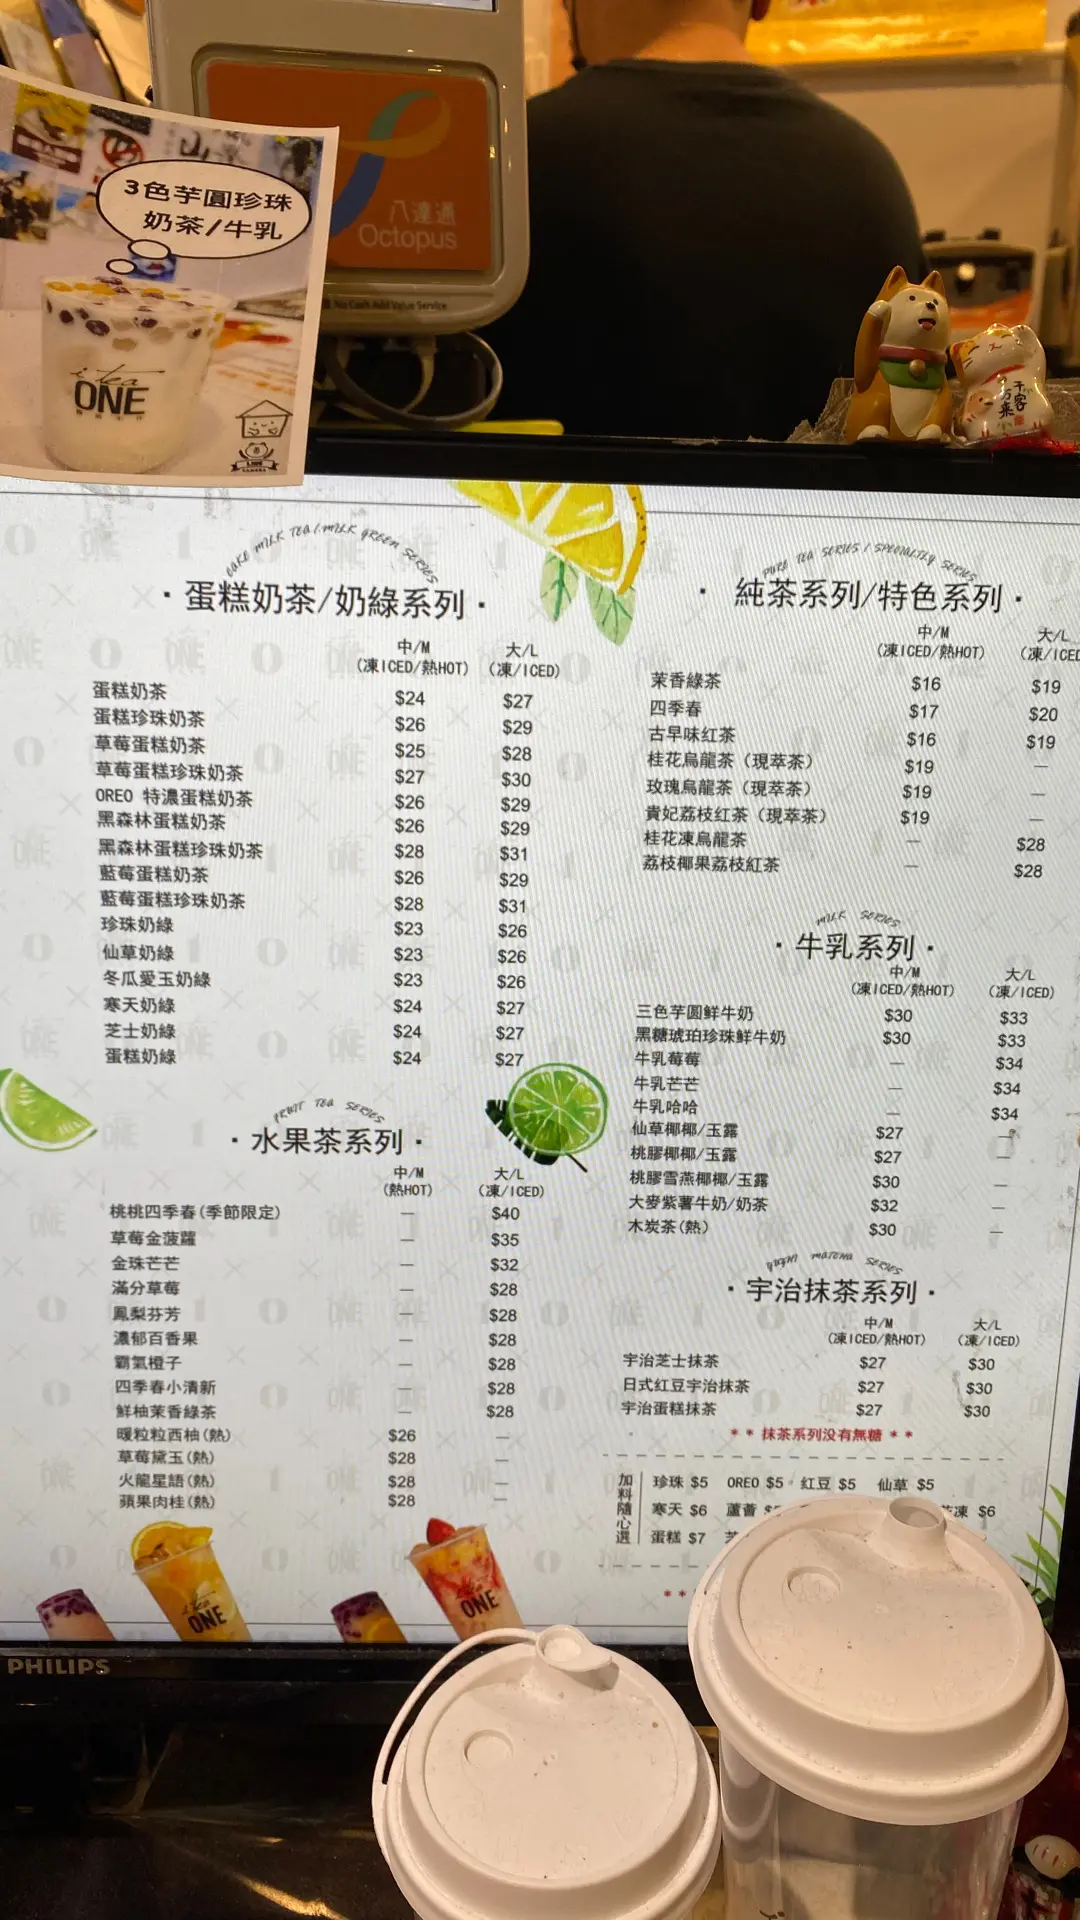 3色芋圓珍珠
奶茶/牛乳
i tea
ONE
八達通
Octopus
No Cash Add Value Service
千客
万来
CAKE MILK TEA/MILK GREEN SERIES
·蛋糕奶茶/奶綠系列·
中/M 大/L
(凍ICED/熱HOT) (凍/ICED)
蛋糕奶茶 $24 $27
蛋糕珍珠奶茶 $26 $29
草莓蛋糕奶茶 $25 $28
草莓蛋糕珍珠奶茶 $27 $30
OREO 特濃蛋糕奶茶 $26 $29
黑森林蛋糕奶茶 $26 $29
黑森林蛋糕珍珠奶茶 $28 $31
藍莓蛋糕奶茶 $26 $29
藍莓蛋糕珍珠奶茶 $28 $31
珍珠奶綠 $23 $26
仙草奶綠 $23 $26
冬瓜愛玉奶綠 $23 $26
寒天奶綠 $24 $27
芝士奶綠 $24 $27
蛋糕奶綠 $24 $27
FRUIT TEA SERIES
·水果茶系列·
中/M 大/L
(熱HOT) (凍/ICED)
桃桃四季春(季節限定) — $40
草莓金菠蘿 — $35
金珠芒芒 — $32
滿分草莓 — $28
鳳梨芬芳 — $28
濃郁百香果 — $28
霸氣橙子 — $28
四季春小清新 — $28
鮮柚茉香綠茶 — $28
暖粒粒西柚(熱) $26 —
草莓黛玉(熱) $28 —
火龍星語(熱) $28 —
蘋果肉桂(熱) $28 —
PURE TEA SERIES / SPECIALTY SERIES
·純茶系列/特色系列·
中/M 大/L
(凍ICED/熱HOT) (凍/ICED
茉香綠茶 $16 $19
四季春 $17 $20
古早味红茶 $16 $19
桂花烏龍茶(現萃茶) $19 —
玫瑰烏龍茶(現萃茶) $19 —
貴妃荔枝红茶(現萃茶) $19 —
桂花凍烏龍茶 — $28
荔枝椰果荔枝紅茶 — $28
MILK SERIES
·牛乳系列·
中/M 大/L
(凍ICED/熱HOT) (凍/ICED)
三色芋圆鮮牛奶 $30 $33
黑糖琥珀珍珠鮮牛奶 $30 $33
牛乳莓莓 — $34
牛乳芒芒 — $34
牛乳哈哈 — $34
仙草椰椰/玉露 $27 —
桃膠椰椰/玉露 $27 —
桃膠雪燕椰椰/玉露 $30 —
大麥紫薯牛奶/奶茶 $32 —
木炭茶(熱) $30 —
MATCHA SERIES
·宇治抹茶系列·
中/M 大/L
(凍ICED/熱HOT) (凍/ICED)
宇治芝士抹茶 $27 $30
日式红豆宇治抹茶 $27 $30
宇治蛋糕抹茶 $27 $30
**抹茶系列没有無糖**
加料隨心選
珍珠 $5 OREO $5 红豆 $5 仙草 $5
寒天 $6 蘆薈 凍 $6
蛋糕 $7
**
ONE
ONE
PHILIPS